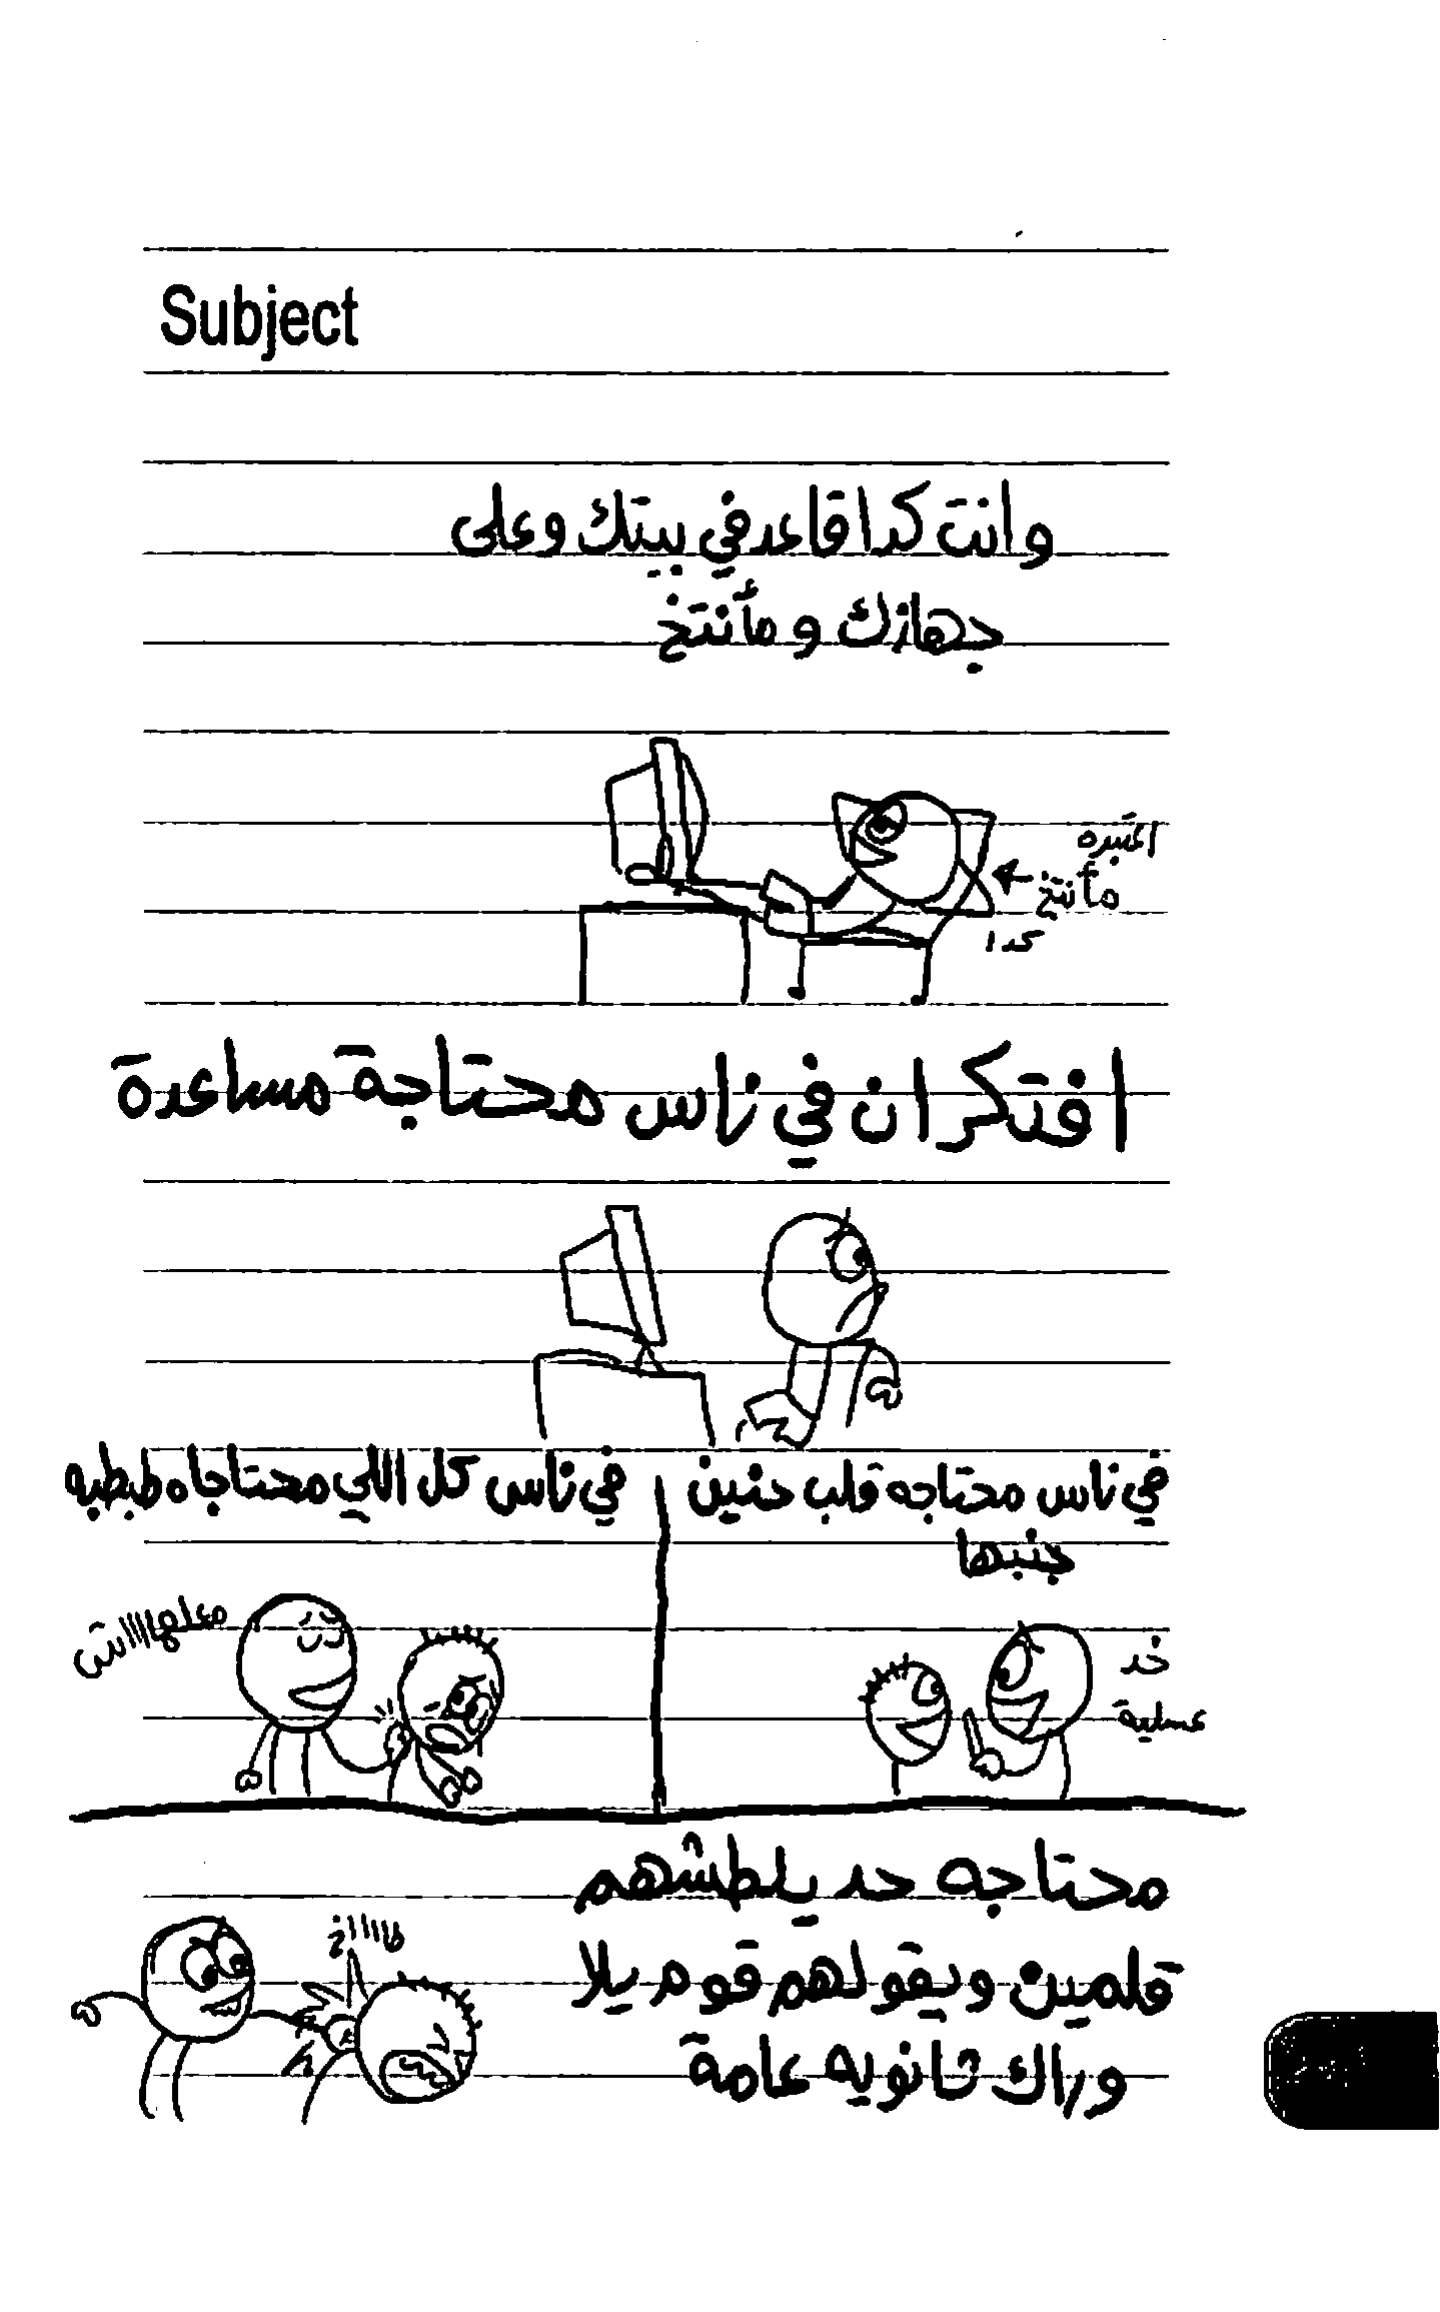 Subject
وانت كدا قاعد في بيتك وعلى
جهازك و مأنتخ
اعتبره
مأنتخ
كدا
افتكر ان في ناس محتاجة مساعدة
في ناس محتاجه قلب حنين
جنبها
في ناس كل اللي محتاجاه طبطبه
خد
عسلية
معلهاااااش
محتاجه حد يلطشهم
قلمين ويقولهم قوم يلا
وراك ثانويه عامة